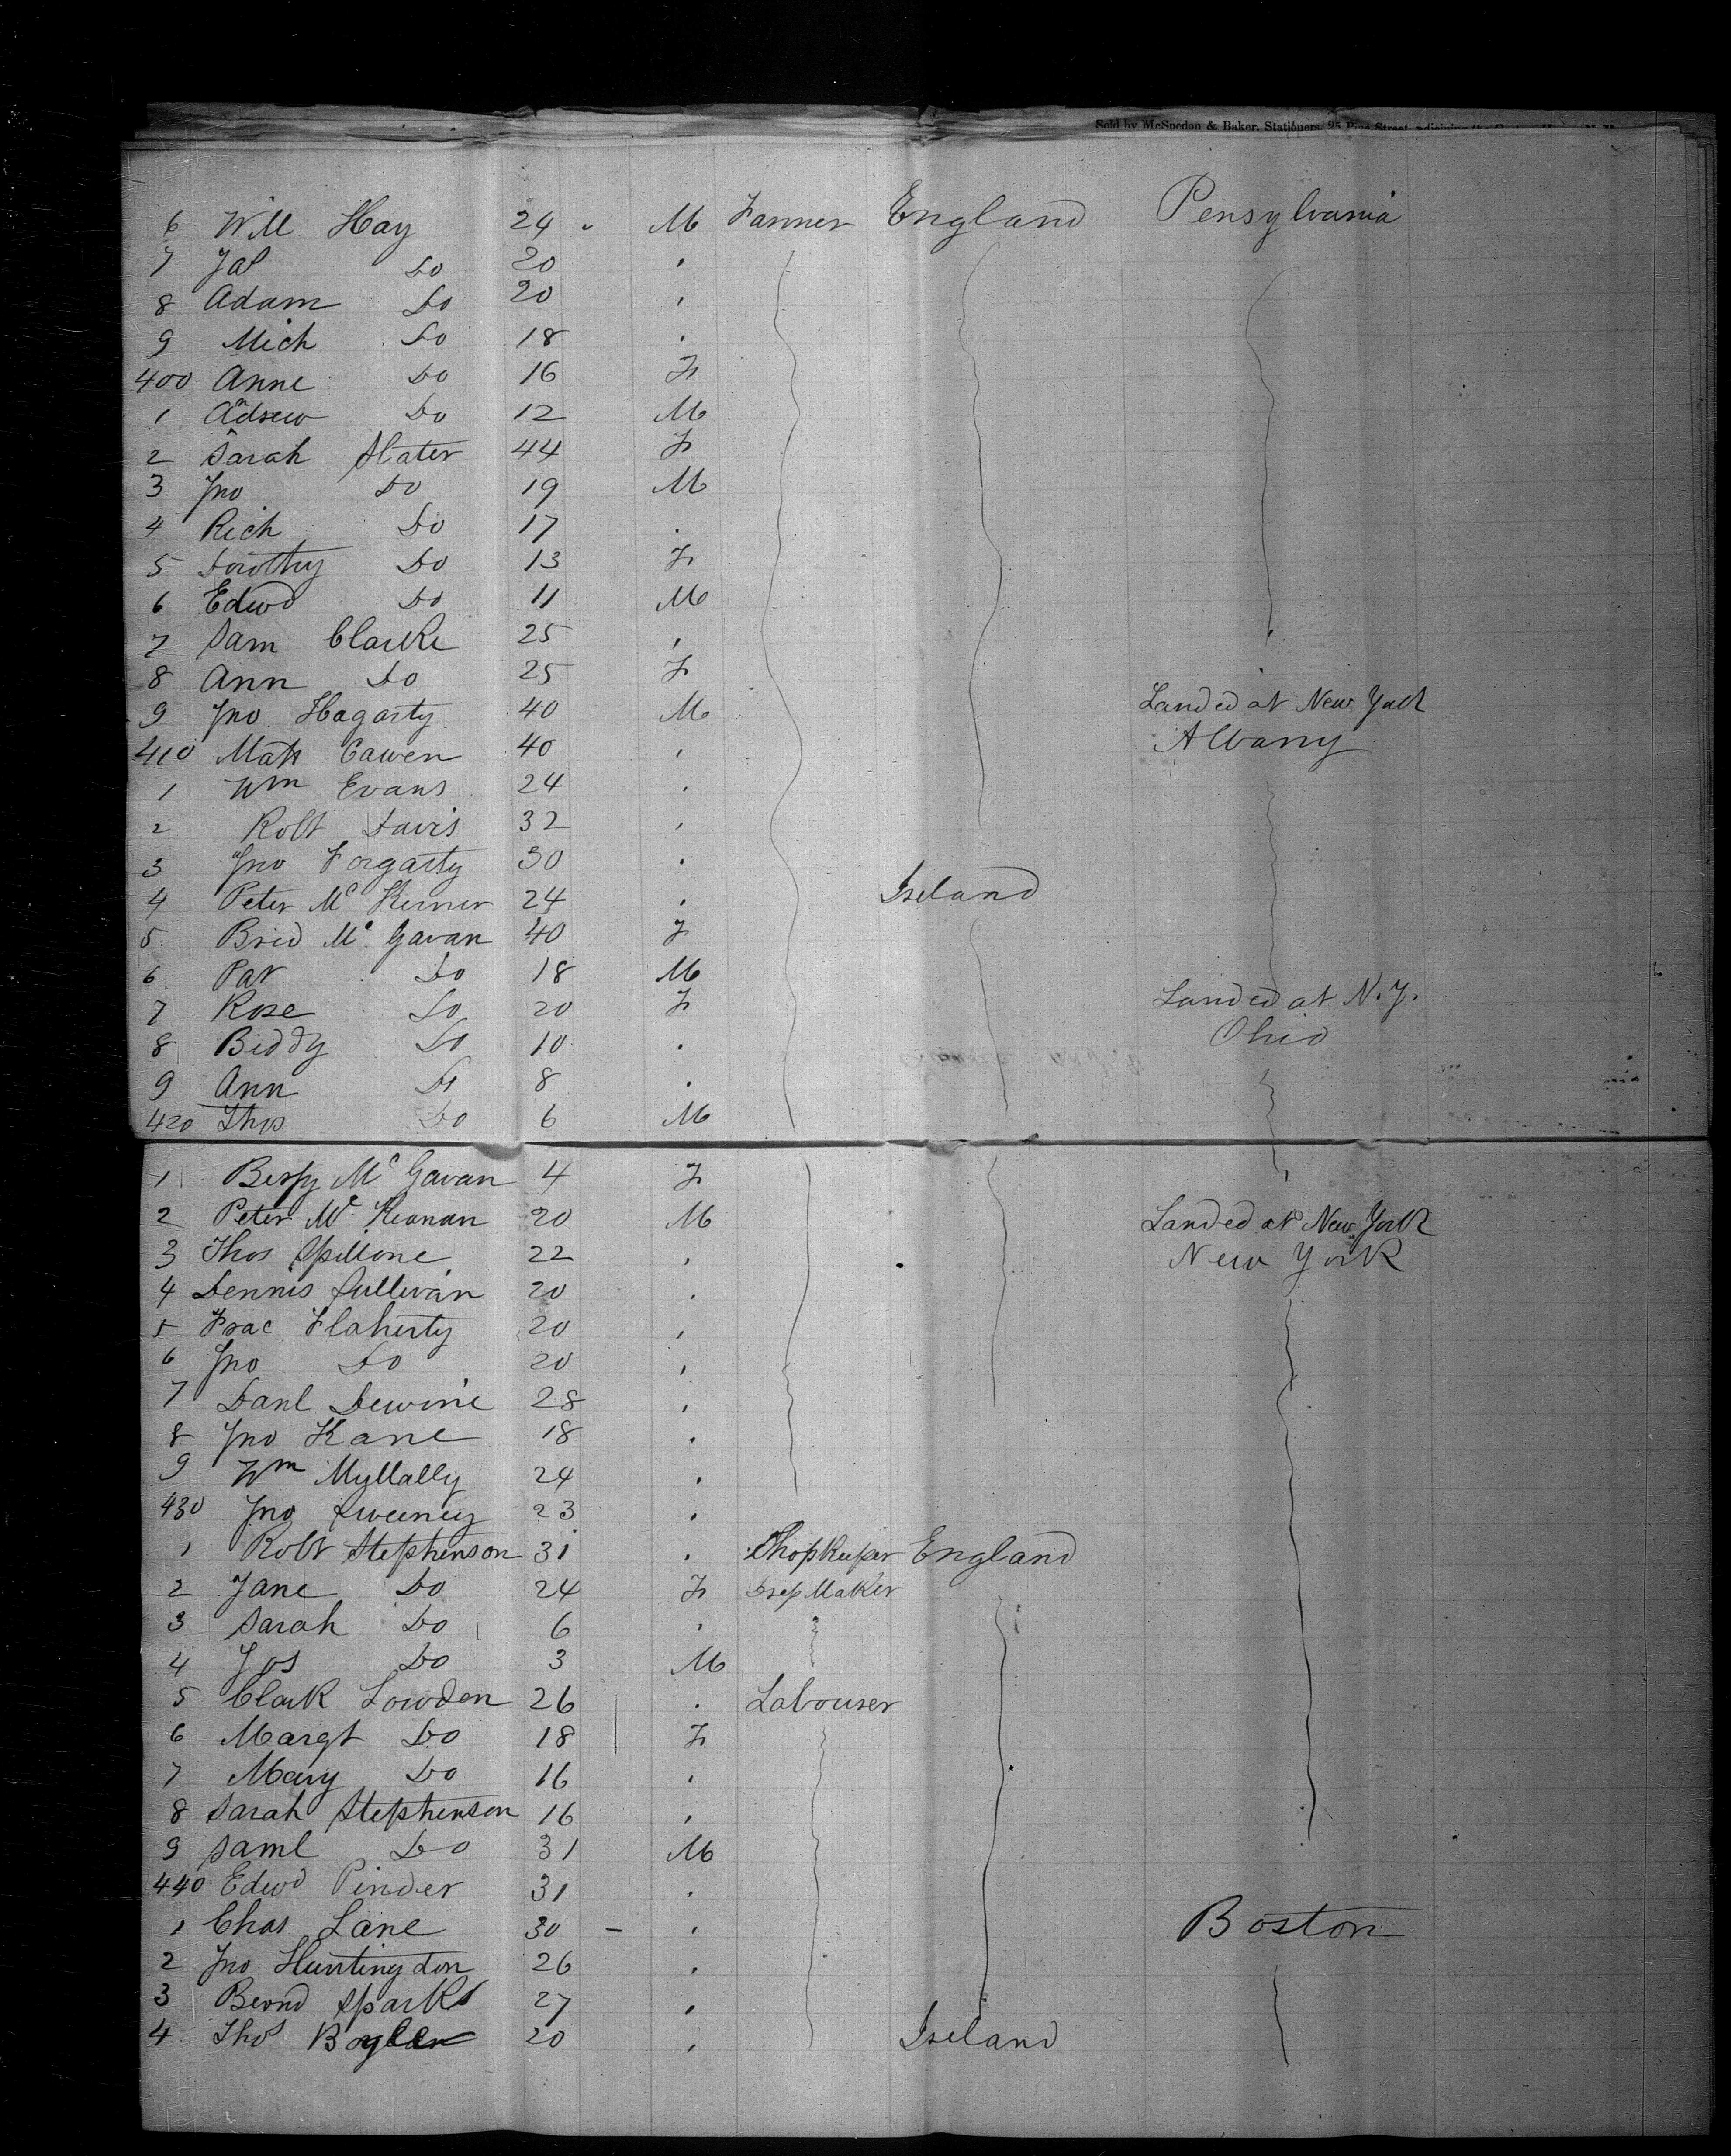 Sold by McSpedon & Baker, Stationers, 25 Pine Street, adjoining the Custom House, N. Y.
6 Will Hay 24 " M Farmer England Pensylvania
7 Jas Do 20 "
8 Adam Do 20 "
9 Mich Do 18 "
400 Anne Do 16 F
1 Andrew Do 12 M
2 Sarah Slater 44 F
3 Jno Do 19 M
4 Rich Do 17 "
5 Dorothy Do 13 F
6 Edwd Do 11 M
7 Sam Clarke 25 "
8 Ann Do 25 F
9 Jno Hagarty 40 M Landed at New York
410 Matt Cawen 40 " Albany
1 Wm Evans 24 "
2 Robt Davis 32 "
3 Jno Fogarty 30 "
4 Peter Mc Kerner 24 " Ireland
5 Brid Mc Gavan 40 F
6 Pat Do 18 M
7 Rose Do 20 F Landed at N.Y.
8 Biddy Do 10 " Ohio
9 Ann Do 8 "
420 Thos Do 6 M
1 Bessy Mc Gavan 4 F
2 Peter Mc Keanan 20 M Landed at New York
3 Thos Spillone 22 " New York
4 Dennis Sullivan 20 "
5 Isac Flaherty 20 "
6 Jno Do 20 "
7 Danl Dewine 28 "
8 Jno Kane 18 "
9 Wm Myllally 24 "
430 Jno Sweeney 23 "
1 Robt Stephenson 31 " Shopkeeper England
2 Jane Do 24 F Dress Maker
3 Sarah Do 6 "
4 Jos Do 3 M
5 Clark Lowden 26 " Labourer
6 Margt Do 18 F
7 Mary Do 16 "
8 Sarah Stephenson 16 "
9 Saml Do 31 M
440 Edwd Pinder 31 "
1 Chas Lane 30 - " Boston
2 Jno Huntingdon 26 "
3 Bernd Sparks 27 "
4 Thos Boylan 20 " Ireland